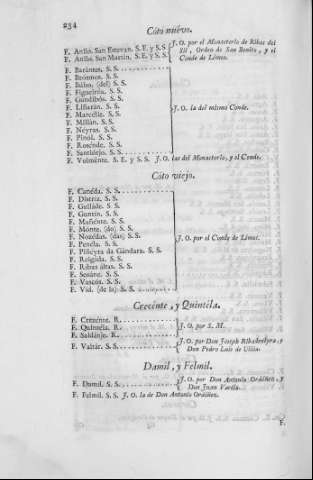 234
Coto nuevo.
F. Anllo. San Estevan. S. E. y S. S. J. O. por el Monasterio de Ribas del Sil, Orden de San Benito, y el Conde de Lemos.
F. Anllo. San Martin. S. E. y S. S.
F. Barántes. S. S.
F. S. S.
F. (del) S. S.
F. Figueiróa. S. S.
F. Gundibós. S. S.
F. Liñarán. S. S.
F. Marcelle. S. S.
F. Millán. S. S.
F. Neyras. S. S.
F. Pinol. S. S.
F. Rosénde. S. S.
F. Santiórjo. S. S.
J. O. la del mismo Conde.
F. Vulménte. S. E. y S. S. J. O. las del Monasterio, y el Conde.
Coto viejo.
F. Canéda. S. S.
F. Distriz. S. S.
F. Gullade. S. S.
F. Guntin. S. S.
F. Mañénte. S. S.
F. Monte. (do) S. S.
F. Nozédas. (das) S. S.
F. Penela. S. S.
F. Piñeyra da Gándara. S. S.
F. Reigáda. S. S.
F. Ribas altas. S. S.
F. Seoáne. S. S.
F. Vascós. S. S.
F. Vid. (de la) S. S.
J. O. por el Conde de Lemos.
Crecénte, y Quintéla.
F. Crecénte. R.
F. Quintéla. R.
F. Saldánje. R.
J. O. por S. M.
F. Valtár. S. S. J. O. por Don Joseph Ribadneyra, y Don Pedro Luis de Ulloa.
Damil, y Felmil.
F. Damil. S. S. J. O. por Don Antonio Ordóñez, y Don Juan Varéla.
F. Felmil. S. S. J. O. la de Don Antonio Ordóñez.
F.